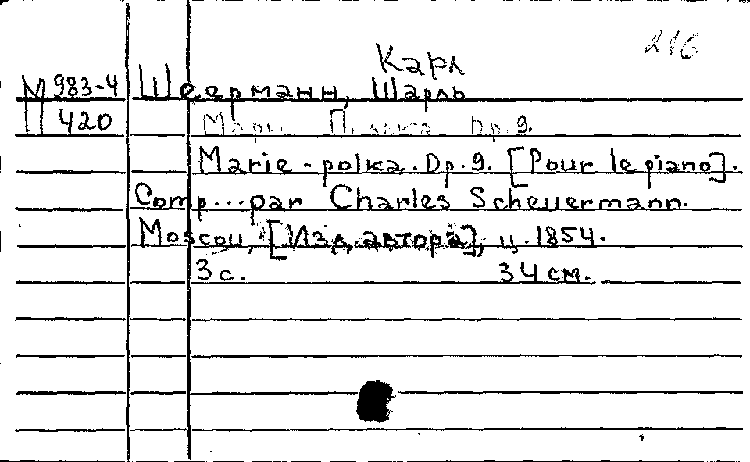 216
Карл
М 983-4 Шеерманн, Шарль
420 Мари. Полька. Op. 9.
Marie-polka. Op. 9. [Pour le piano].
Comp... par Charles Scheuermann.
Moscou, [Изд. автора], ц. 1854.
3 с. 34 см.